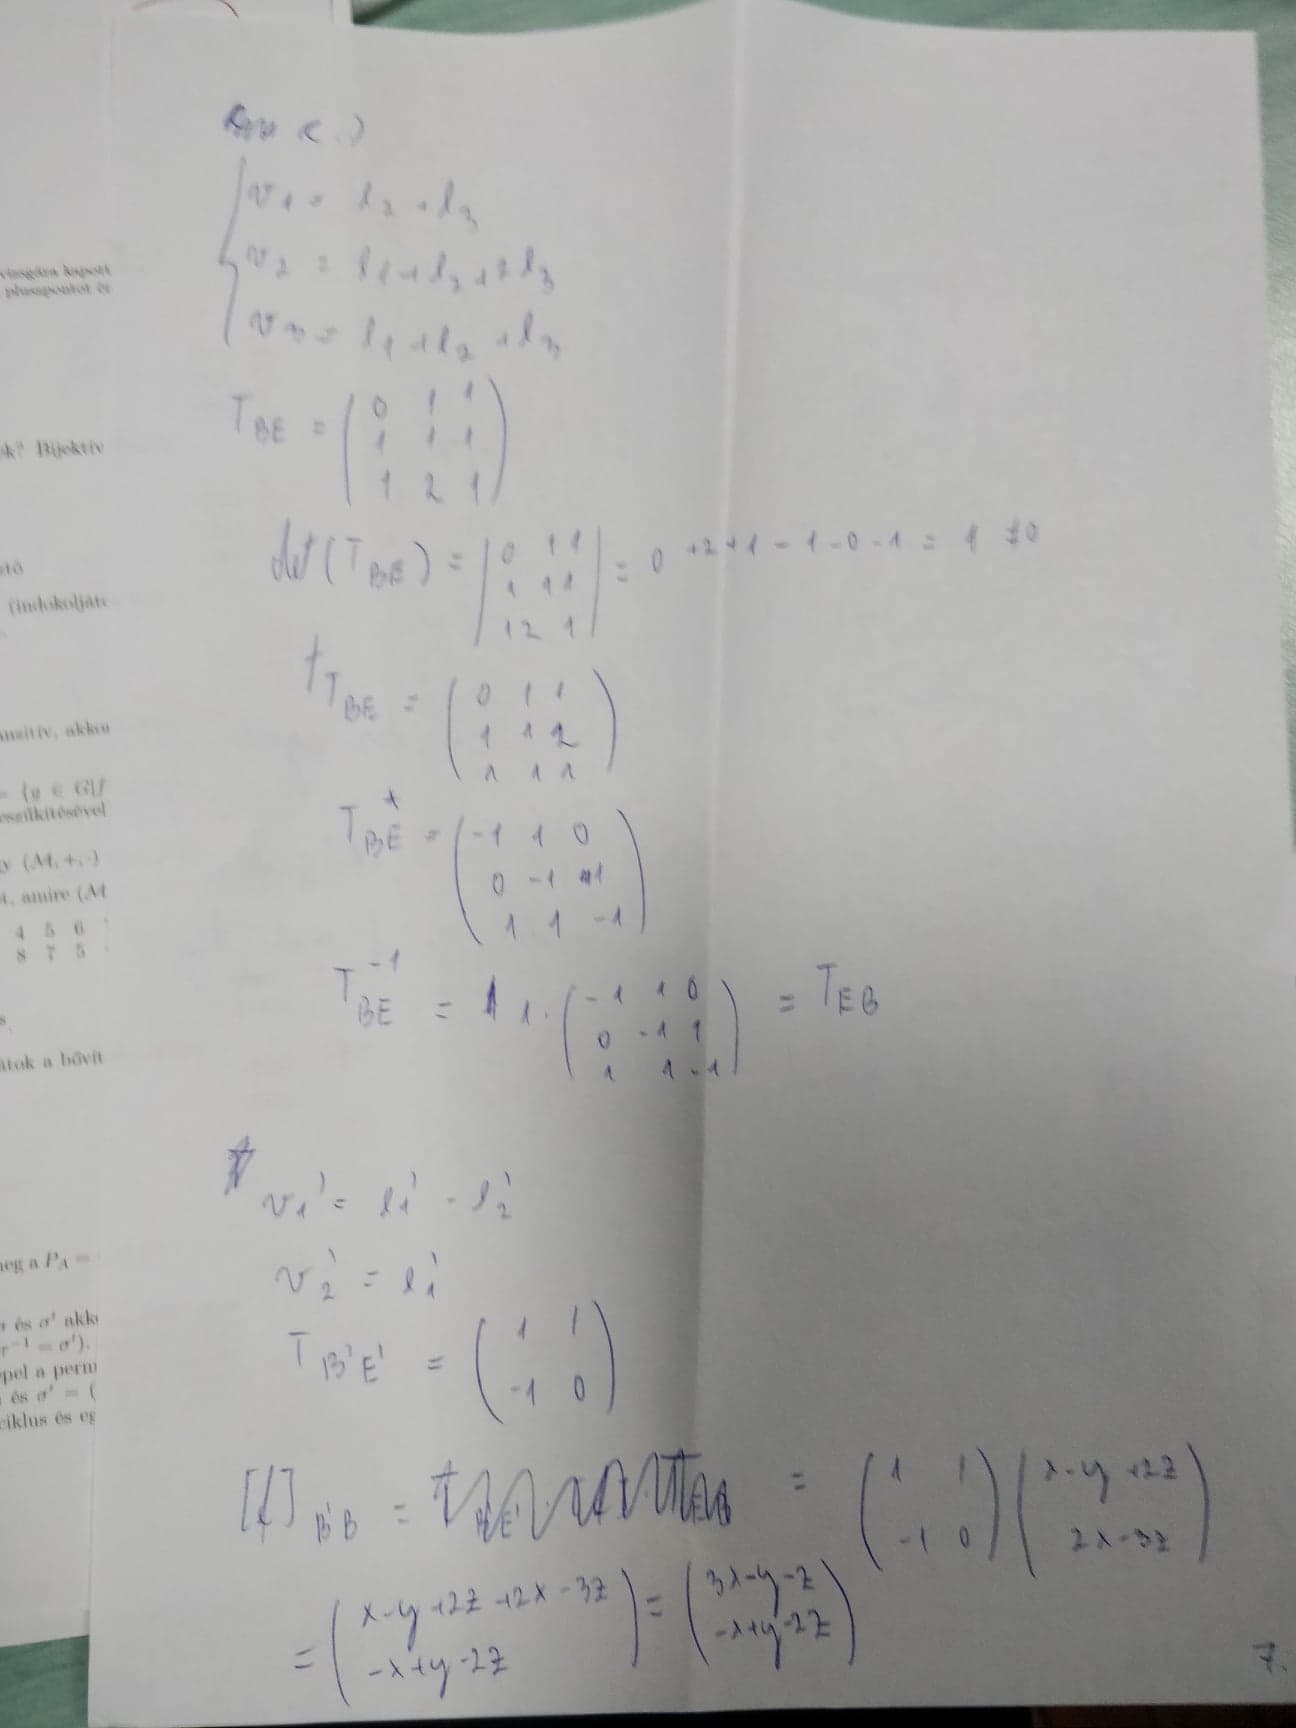 vizsgára kapott
pluszpontot és
ok? Bijektív
(indokoljátok
tranzitív, akkor
= {g ∈ G|f
leszűkítésével
(M, +, ·)
, amire (M
4 5 6
8 7 5
játok a bővít
meg a P_A =
és σ' akkor
τ^{-1} = σ').
és σ' = (
ciklus és eg
v_1 = l_2 + l_3
v_2 = l_1 + l_2 + 2 l_3
v_3 = l_1 + l_2 + l_3
T_{BE} = ( 0 1 1
1 1 1
1 2 1 )
det(T_{BE}) = | 0 1 1 | = 0 + 2 + 1 - 1 - 0 - 1 = 1 ≠ 0
1 1 1
1 2 1
^tT_{BE} = ( 0 1 1
1 1 2
1 1 1 )
T_{BE}^* = ( -1 1 0
0 -1 1
1 1 -1 )
T_{BE}^{-1} = 1 · ( -1 1 0 ) = T_{EB}
0 -1 1
1 1 -1
v_1' = l_1' - l_2'
v_2' = l_1'
T_{B'E'} = ( 1 1
-1 0 )
[f]_{B'B} = = ( 1 1 ) ( x - y + 2z )
( -1 0 ) ( 2x - 3z )
= ( x - y + 2z + 2x - 3z ) = ( 3x - y - z )
( -x + y - 2z ) ( -x + y - 2z )
7.